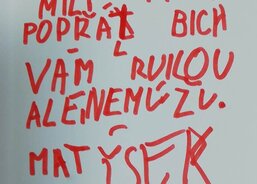 POPŘÁL BICH
VÁM RUKOU
ALE NEMŮŽU.
MATÝSEK